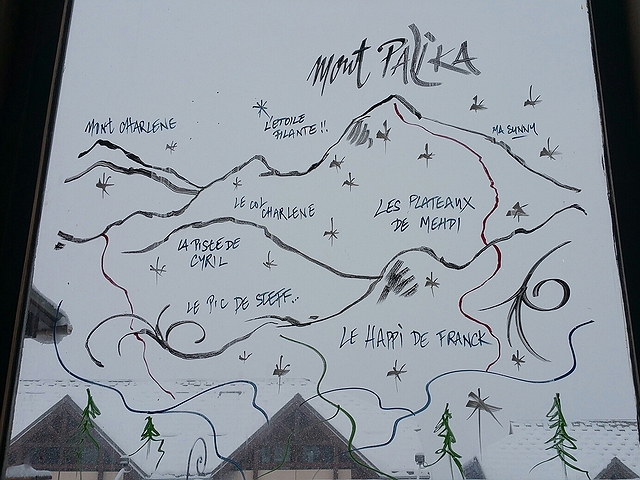 MONT PALIKA
MONT CHARLENE
L'ETOILE
FILANTE!!
MA SUNNY
LE COL
CHARLENE
LES PLATEAUX
DE MEHDI
LA PISTE DE
CYRIL
LE PIC DE STEFF...
LE HAPPI DE FRANCK